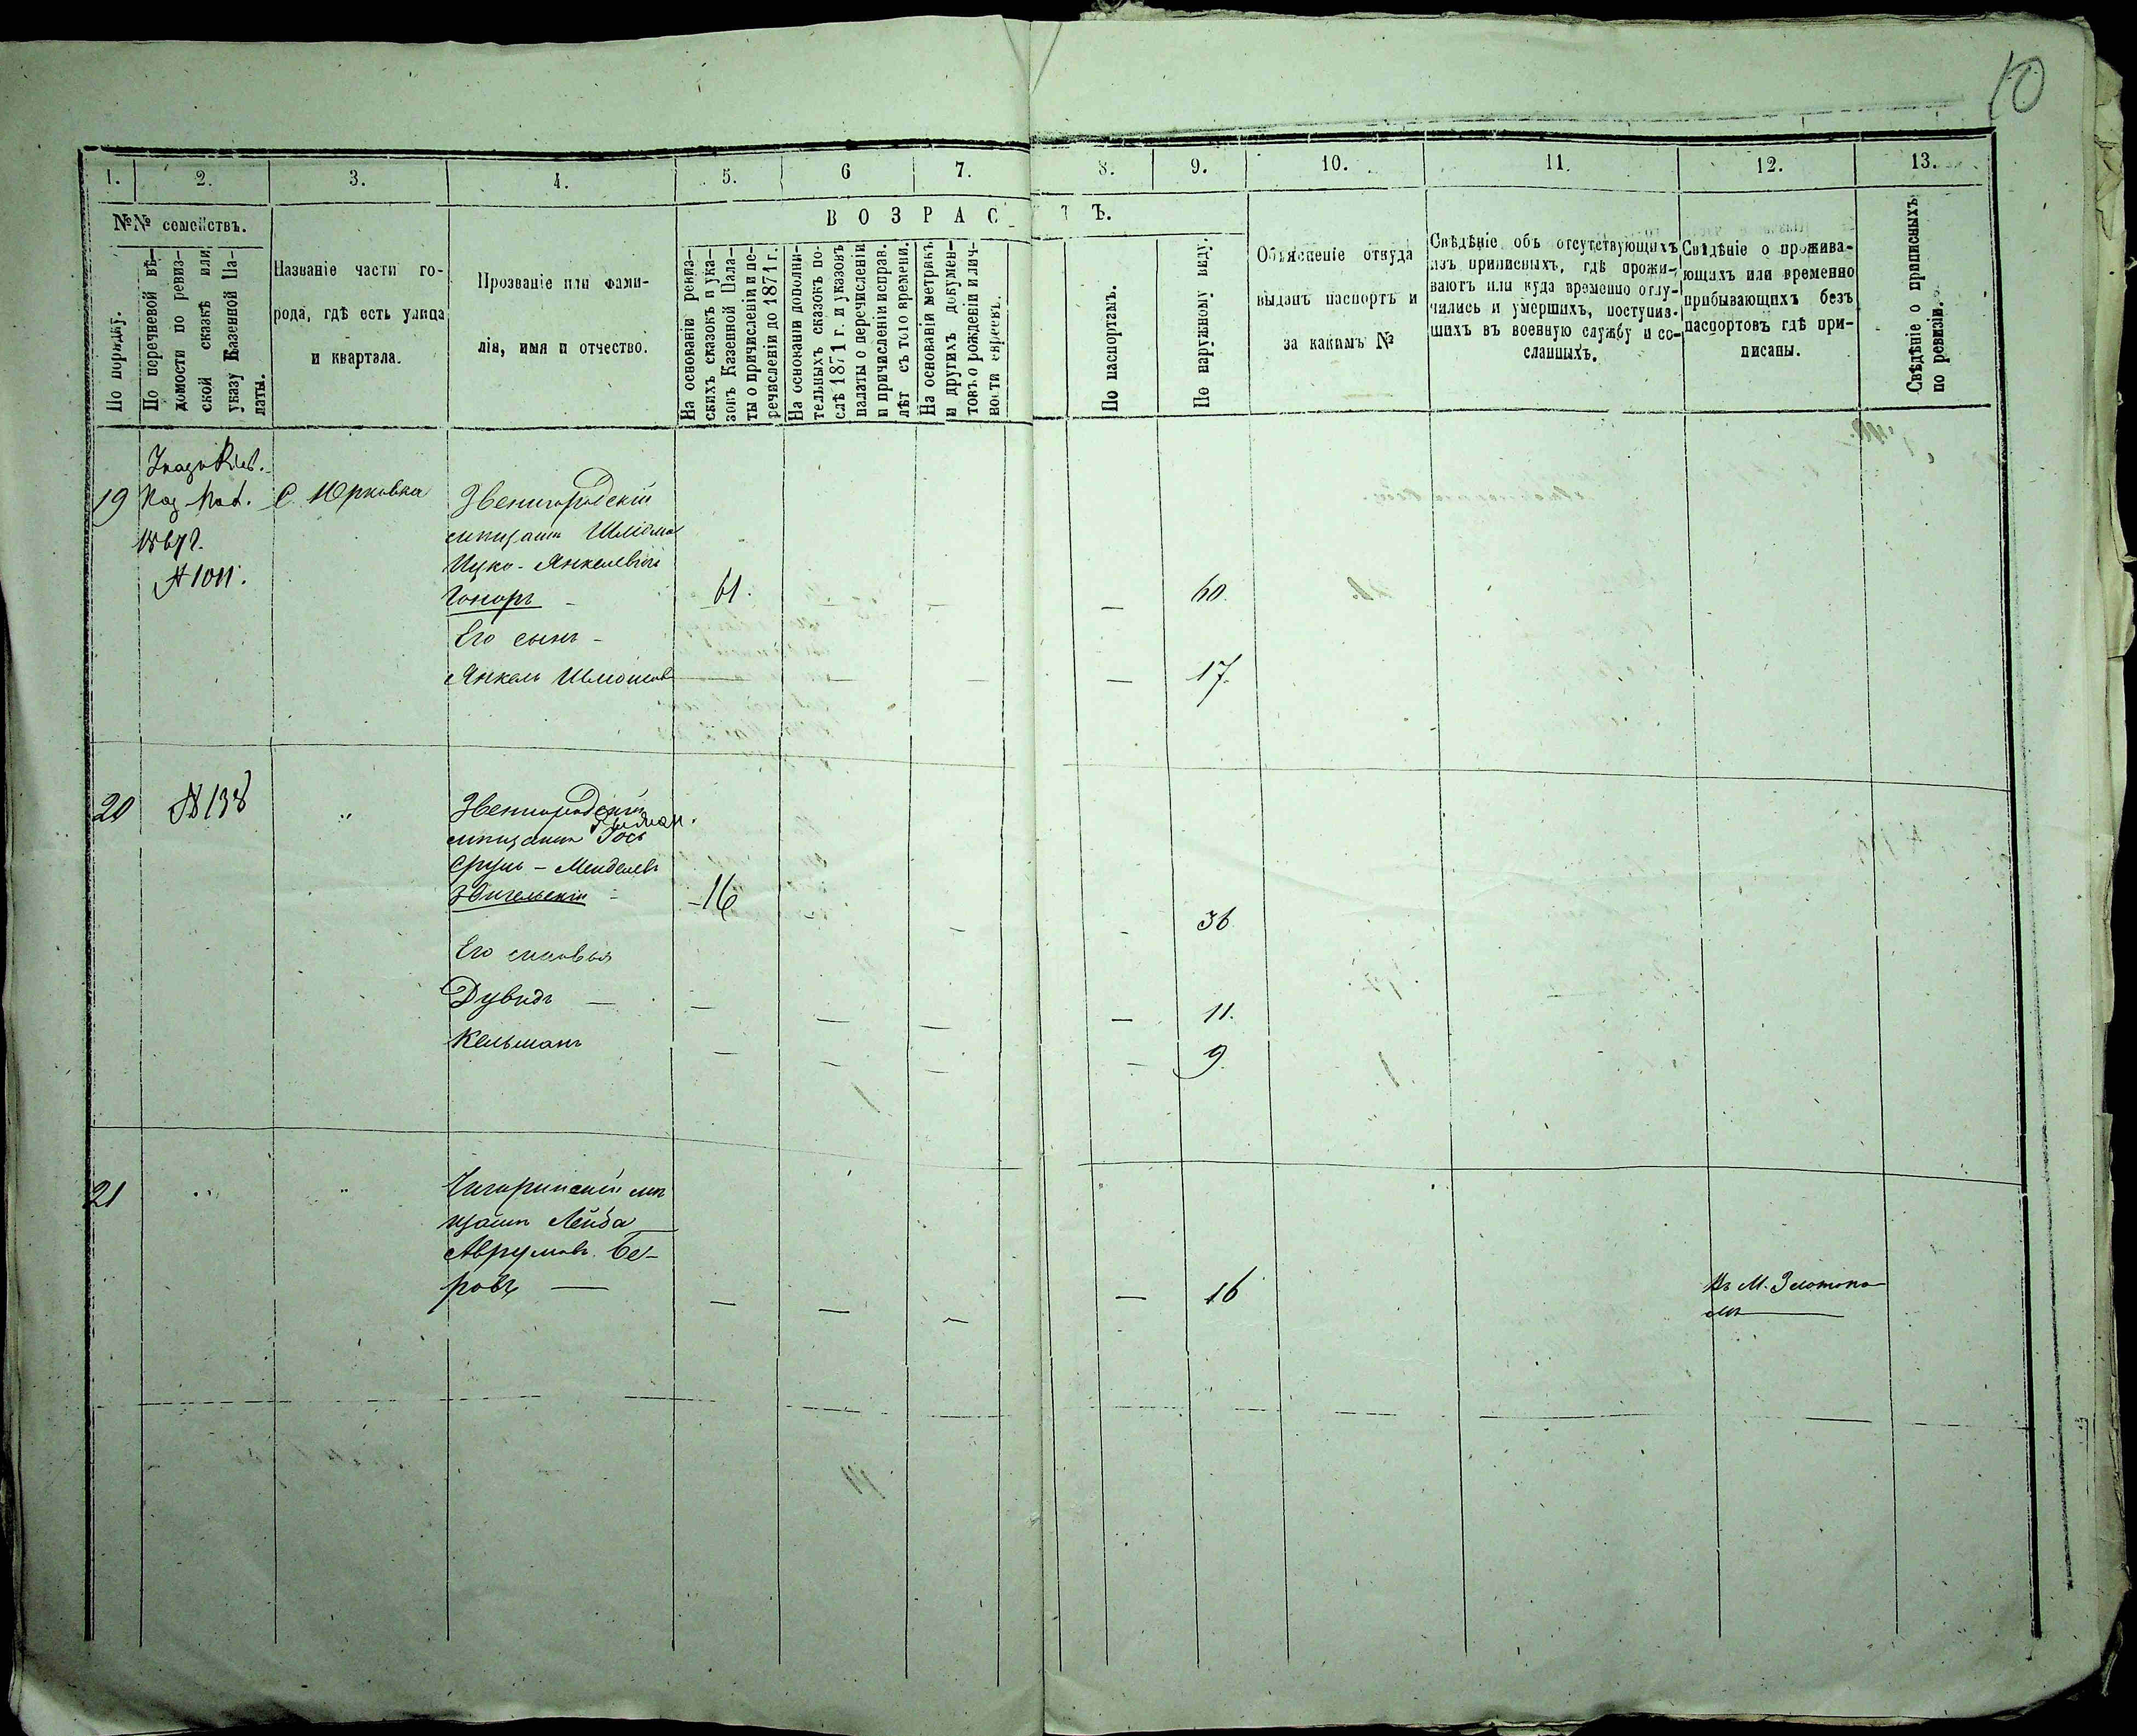 10
1.
2.
3.
4.
5.
6
7.
8.
9.
10.
11.
12.
13.
№№ семействъ.
ВОЗРАС
ТЪ.
По порядку.
По перечневой вѣ-
домости по ревиз-
ской сказкѣ или
указу Казенной Па-
латы.
Названіе части го-
рода, гдѣ есть улица
и квартала.
Прозваніе или фами-
лія, имя и отчество.
На основаніи ревиз-
скихъ сказокъ и ука-
зовъ Казенной Пала-
ты о причисленіи и пе-
речисленіи до 1871 г.
На основаніи дополни-
тельныхъ сказокъ по-
слѣ 1871 г. и указовъ
палаты о перечисленіи
и причисленіи исправ.
лѣт съ того времени.
На основаніи метрикъ
и другихъ докумен-
товъ о рожденіи и лич-
ности евреевъ.
По паспортамъ.
По наружному виду.
Объясненіе откуда
выданъ паспортъ и
за какимъ №
Свѣдѣніе объ отсутствующихъ
изъ приписныхъ, гдѣ прожи-
ваютъ или куда временно отлу-
чились и умершихъ, поступив-
шихъ въ военную службу и со-
сланныхъ.
Свѣдѣніе о прожива-
ющихъ или временно
прибывающихъ безъ
паспортовъ гдѣ при-
писаны.
Свѣдѣніе о приписныхъ
по ревизіи.
19
Каз. Пал.
1867г.
№ 1011.
С. Юрковка
Звенигородскій
мѣщанинъ Шліома
Ицко-Янкелевъ
Гоноръ
61.
60.
Его сынъ
Янкель Шліомовъ
17.
20
№ 138
"
Звенигородскій
мѣщанинъ Іось
Сруль-Менделевъ
Звигельскій
16
36
Его сыновья
Дувидъ
11.
Кельманъ
9.
21
"
"
Чигиринскій мѣ
щанинъ Лейба
Аврумовъ Бе-
ровъ
16
Въ М. Златопо-
лѣ